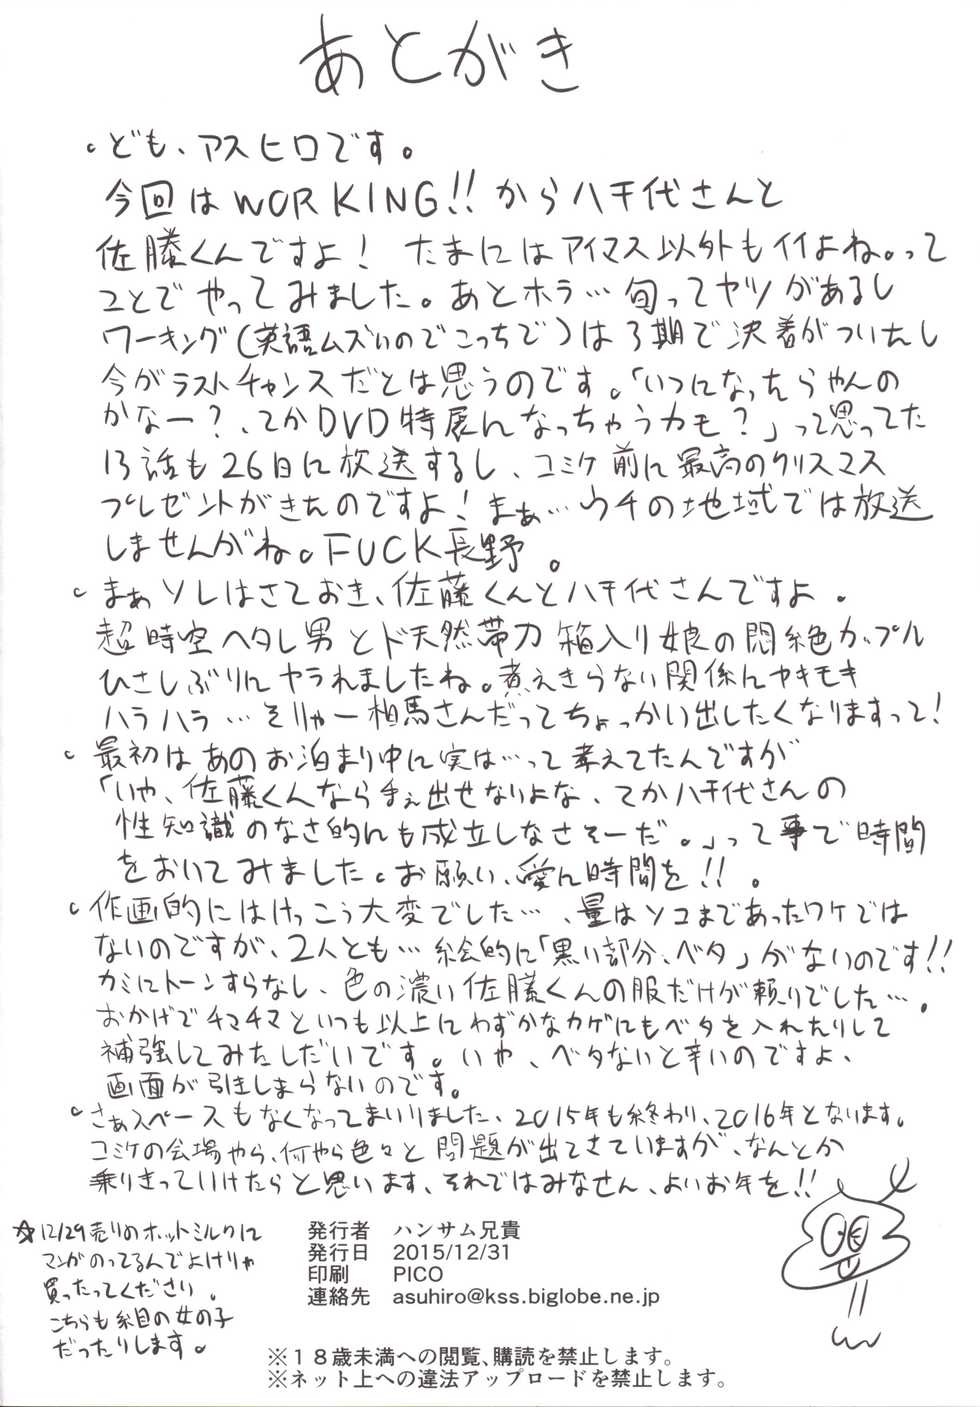 あとがき
。ども、アスヒロです。
今回はWORKING!!から八千代さんと
佐藤くんですよ! たまにはアイマス以外もイイよね。って
ことでやってみました。あとホラ…旬ってヤツがあるし
ワーキング(英語ムズいのでこっちで)は3期で決着がついたし
今がラストチャンスだとは思うのです。「いつになったらやんの
かなー?、てかDVD特展になっちゃうカモ?」って思ってた
13話も26日に放送するし、コミケ前に最高のクリスマス
プレゼントがきたのですよ! まぁ…ウチの地域では放送
しませんがね。FUCK長野。
。まぁソレはさておき、佐藤くんと八千代さんですよ。
超時空ヘタレ男とド天然帯刀箱入り娘の悶絶カップル
ひさしぶりにヤラれましたね。煮えきらない関係にヤキモキ
ハラハラ…そりゃー相馬さんだってちょっかい出したくなりますって!
。最初はあのお泊まり中に実は…って考えてたんですが
「いや、佐藤くんなら手ぇ出せないよな、てか八千代さんの
性知識のなさ的にも成立しなさそーだ。」って事で時間
をおいてみました。お願い、愛に時間を!!。
。作画的にはけっこう大変でした…、量はソコまであったワケでは
ないのですが、2人とも…絵的に「黒い部分、ベタ」がないのです!!
カミにトーンすらなし、色の濃い佐藤くんの服だけが頼りでした…。
おかげでチマチマといつも以上にわずかなカゲにもベタを入れたりして
補強してみたしだいです。いや、ベタないと辛いのですよ、
画面が引きしまらないのです。
。さぁスペースもなくなってまいりました、2015年も終わり、2016年となります。
コミケの会場やら、何やら色々と問題が出てきていますが、なんとか
乗りきっていけたらと思います、それではみなせん、よいお年を!!
☆12/29売りのホットミルクに
マンガのってるんでよけりゃ
買ったってください。
こちらも糸目の女の子
だったりします。
発行者 ハンサム兄貴
発行日 2015/12/31
印刷 PICO
連絡先 asuhiro@kss.biglobe.ne.jp
※18歳未満への閲覧、購読を禁止します。
※ネット上への違法アップロードを禁止します。